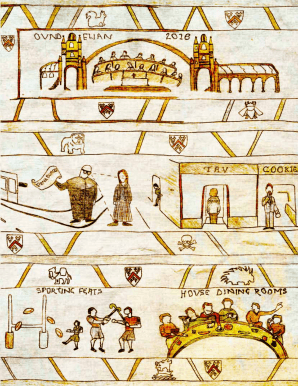 OVNDELIAN 2018
TAV COOKIE
SPORTING FEATS HOUSE DINING ROOMS